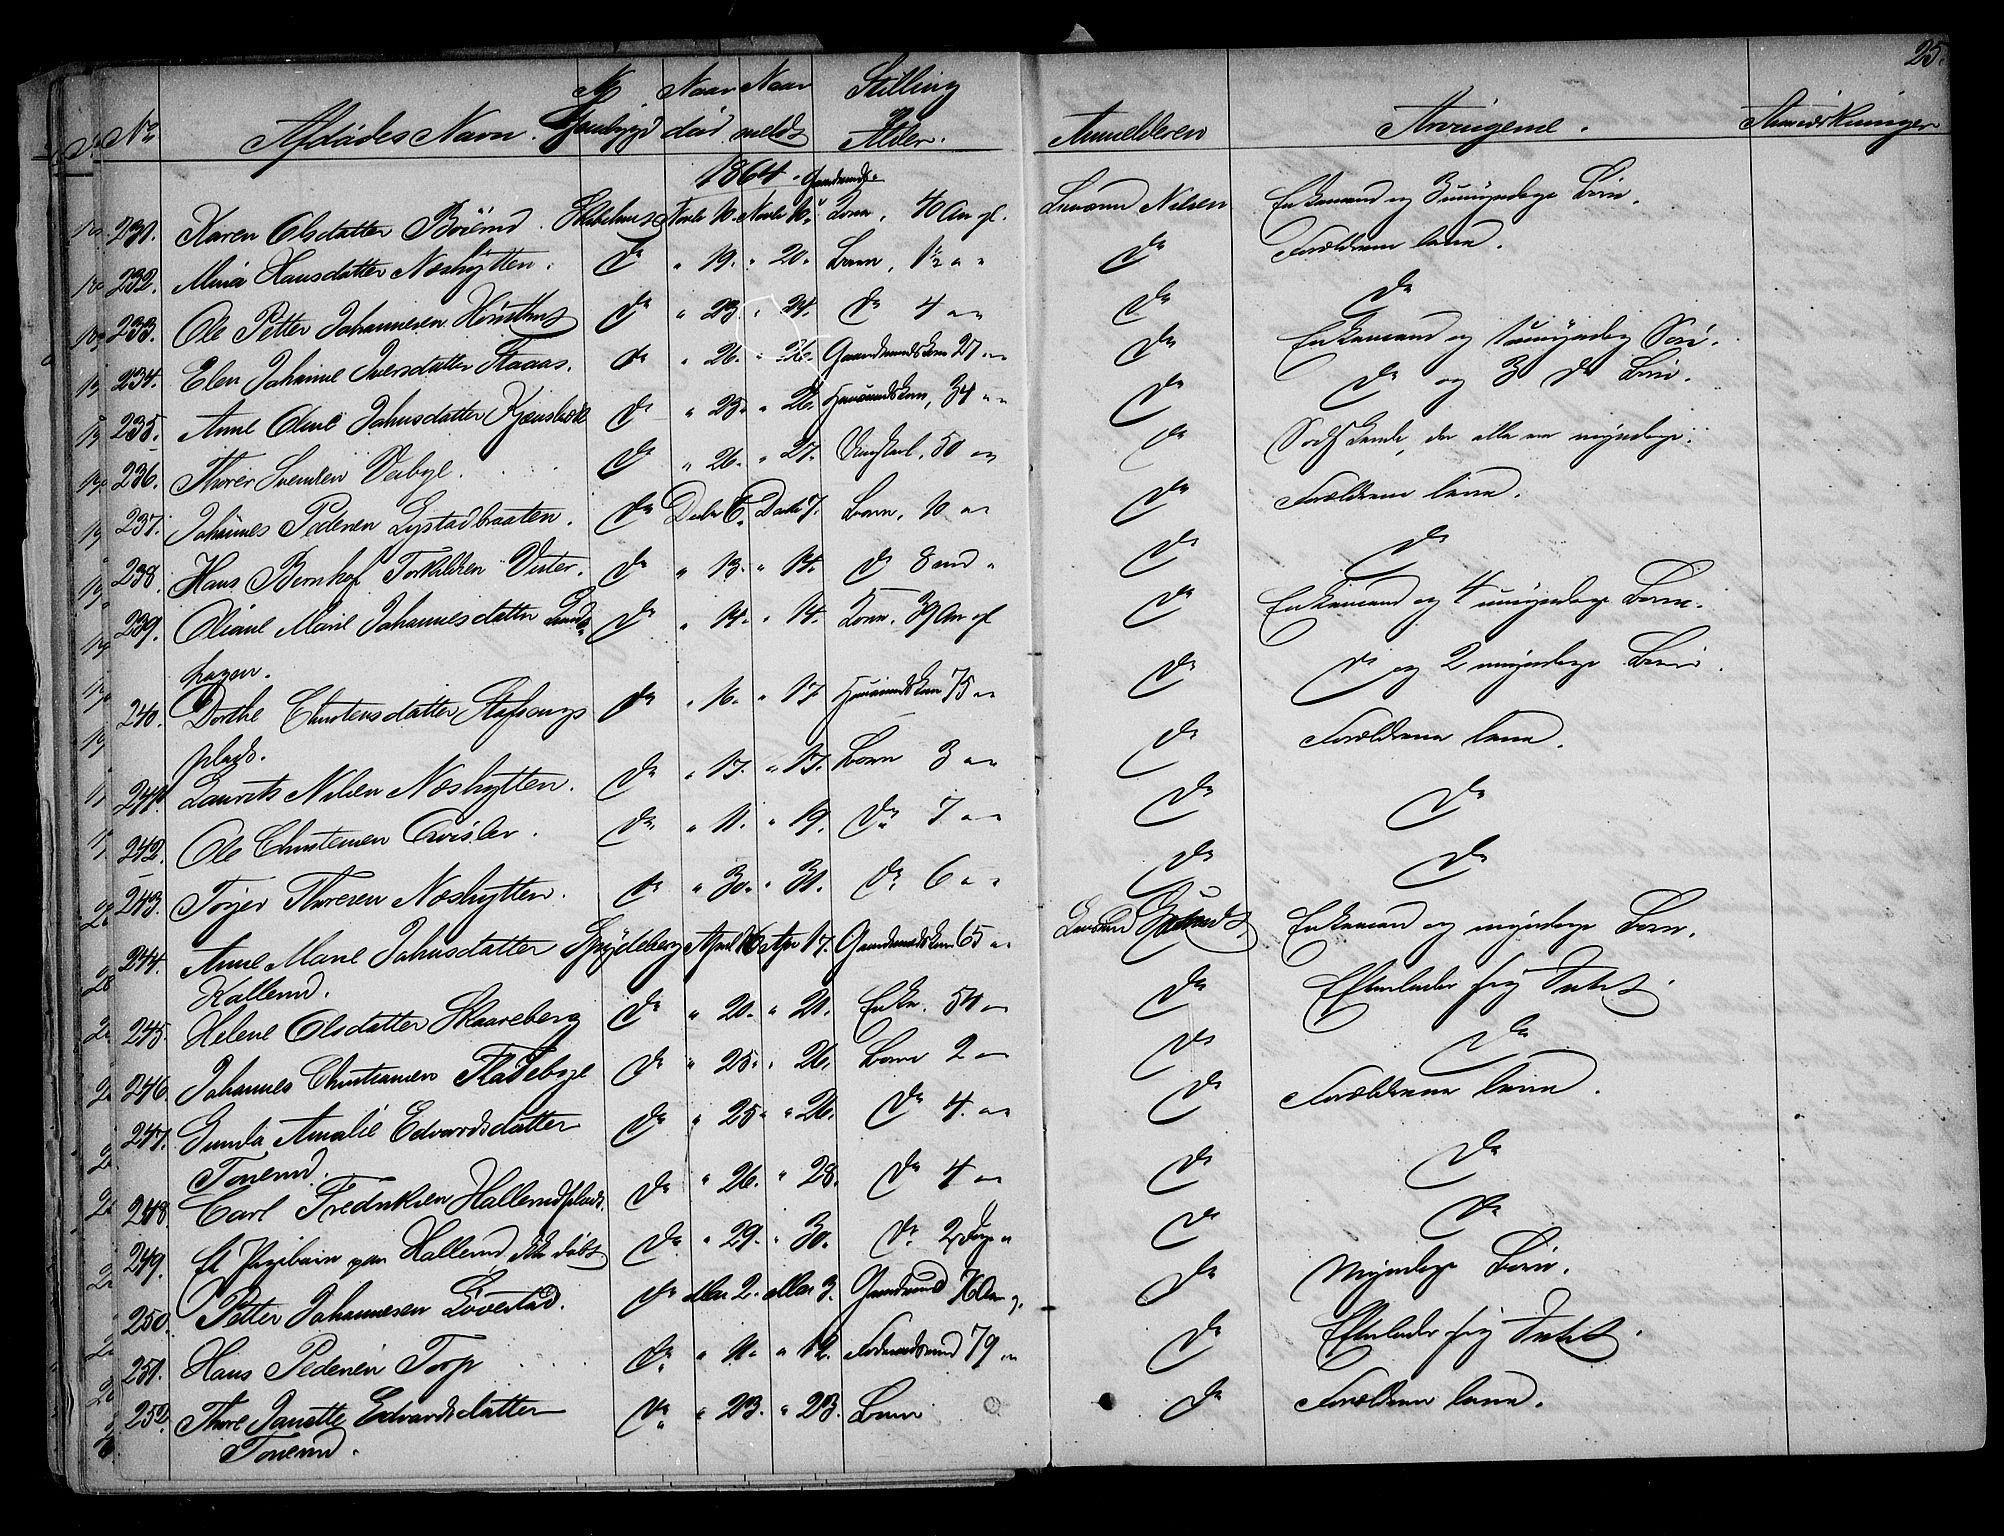 25.
No Afdødes Navn. Naar død Naar meldt Stilling og Alder. Anmelderen Arvingerne. Anmærkninger
1864.
231. Karen Olsdatter Novbr 10. Novbr 10. Kone, 40 Aar gl. Lensmd Nielsen Enkemand og 3 umyndige Børn.
232. Mina Hansdatter Næshytten. do " 19. " 20. Barn, 1½ " " do Forældrene leve.
233. Ole Petter Johannesen do " 23. " 24. do 4 " " do do
234. Elen Johanne Iversdatter Haaas. do " 26. " 26. Gaardmandskone 27 " " do Enkemand og 1 umyndig Søn.
235. Anne Oline Johnsdatter do " 25. " 26. Huusmandskone, 34 " " do do og 3 do Børn.
236. Thorer Svendsen do " 26. " 27. Ungkarl, 50 " " do Sødskende, der alle ere myndige.
237. Johannes Pedersen Lystadbraaten. do Decbr 6. Decbr 7. Barn, 10 " " do Forældrene leve.
238. Hans Bernhof Torkildsen Vister. do " 13. " 14. do 8 Md " do do
239. Oliane Marie Johannesdatter Lunds- do " 14. " 14. Kone, 39 Aar gl do Enkemand og 4 umyndige Børn.
hagen.
240. Dorthe Christensdatter do " 16. " 17. Huusmandskone 75 " " do do og 2 myndige Børn.
plads.
241. Laurits Nilsen Næshytten. do " 17. " 17. Barn 3 " " do Forældrene leve.
242. Ole Christensen Qvisler. do " 11. " 19. do 7 " " do do
243. Torjer Thoresen Næshytten. do " 30. " 31. do 6 " " do do
244. Anne Marie Johnsdatter Spydeberg April 16 Apr 17. Gaardmandskone 65 " " Lensmand Enkemand og myndige Børn.
Kallerud.
245. Helene Olsdatter Skaareberg do " 20. " 21. Enke. 54 " " do Efterlader sig Intet.
246. Johannes Christiansen Fladebye do " 25. " 26. Barn 2 " " do do
247. Gunda Amalie Edvardsdatter do " 25 " " 26. do 4. " " do Forældrene leve.
Tonerud.
248. Carl Fredriksen Hallerudplads. do " 26. " 28. do 4 " " do do
249. Et Pigebarn paa Hallerud ikke døbt do " 29. " 30. do 2 Dage " do do
250. Petter Johannesen Løvestad. do Mai 2. Mai 3. Gaardmand Aar g. do Myndige Børn.
251. Hans Pedersen Torp do " 11. " 12. Føderaadsmand 79 " " do Efterlader sig Intet.
252. Thore Janette Edvardsdatter do " 23. " 23. Barn do Forældrene leve.
Tonerud.